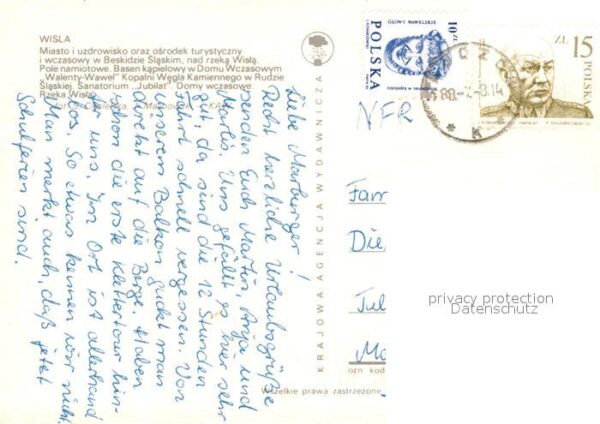 WISŁA
Miasto i uzdrowisko oraz ośrodek turystyczny
i wczasowy w Beskidzie Śląskim, nad rzeką Wisłą.
Pole namiotowe. Basen kąpielowy w Domu Wczasowym
"Walenty-Wawel" Kopalni Węgla Kamiennego w Rudzie
Śląskiej. Sanatorium "Jubilat". Domy wczasowe.
Rzeka Wisła
KRAJOWA AGENCJA WYDAWNICZA
Wszelkie prawa zastrzeżone
GŁOWY WAWELSKIE
POLSKA
10 ZŁ
ZŁ 15
POLSKA
NFR
Liebe Marburger!
Recht herzliche Urlaubsgrüße
senden Euch Martin, Anja und
Marlis. Uns gefällt es hier sehr
gut, da sind die 12 Stunden
Fahrt schnell vergessen. Von
unserem Balkon guckt man
direkt auf die Berge. Haben
schon die erste Klettertour hin-
ter uns. Im Ort ist allerhand
los. So etwas kennen wir nicht.
Man merkt auch, daß jetzt
Schulferien sind.
Fam
Die
Jul
Ma
ozn. kod
privacy protection
Datenschutz